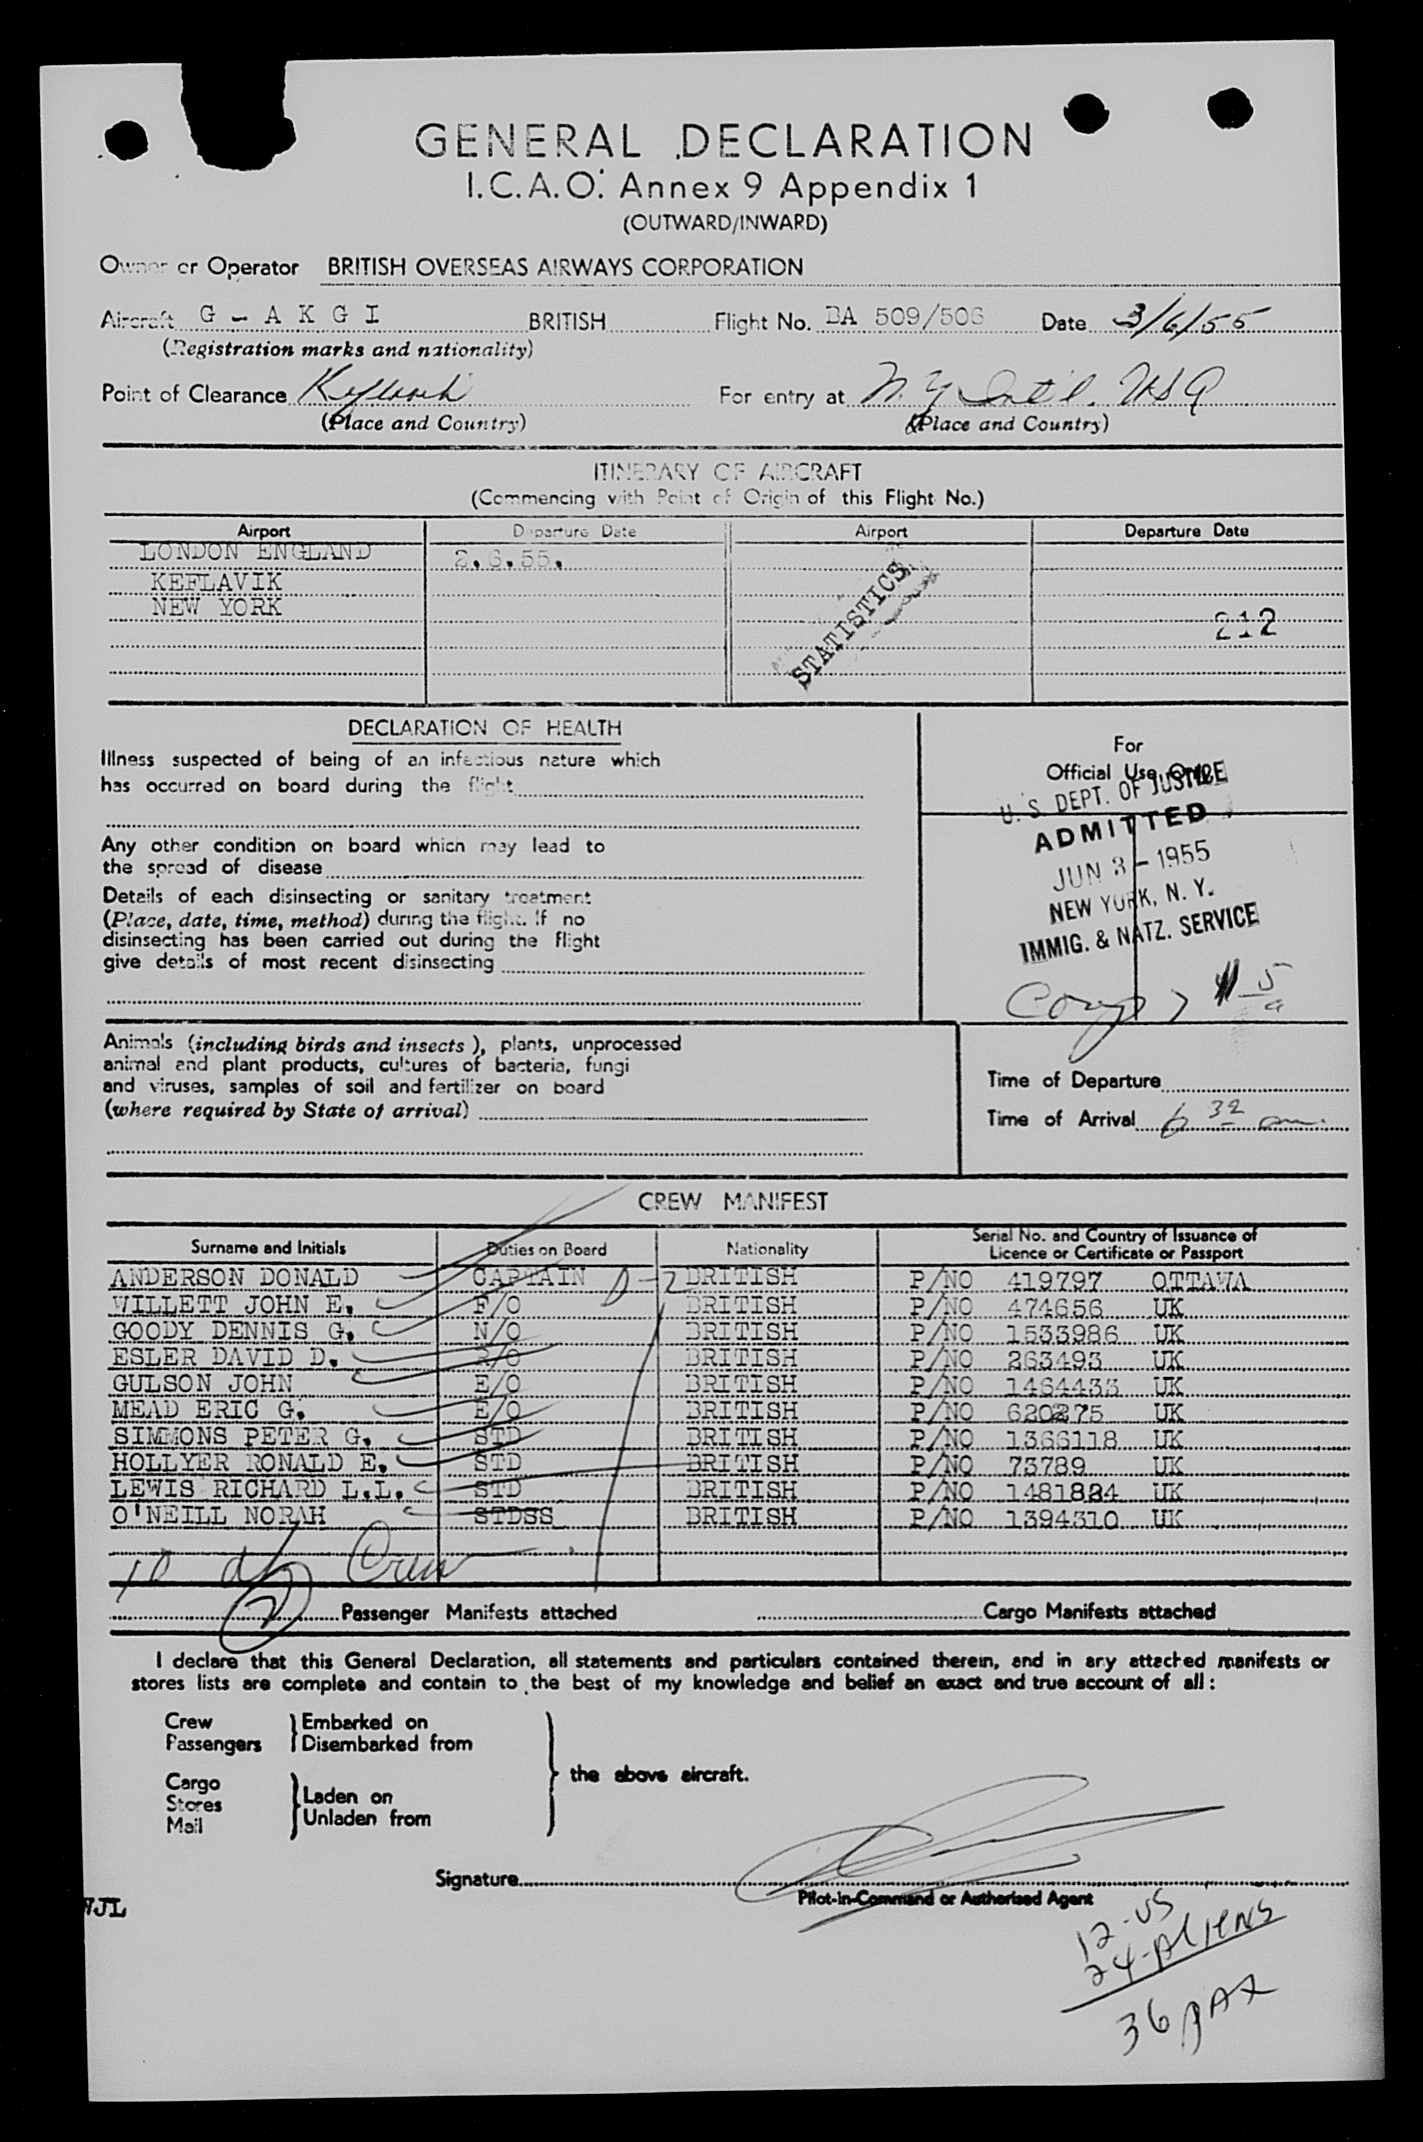 GENERAL DECLARATION
I.C.A.O. Annex 9 Appendix 1
(OUTWARD/INWARD)
Owner or Operator BRITISH OVERSEAS AIRWAYS CORPORATION
Aircraft G - A K G I BRITISH Flight No. BA 509/506 Date 3/6/55
(Registration marks and nationality)
Point of Clearance Keflavik For entry at N.Y. Int'l. USA
(Place and Country) (Place and Country)
ITINERARY OF AIRCRAFT
(Commencing with Point of Origin of this Flight No.)
Airport Departure Date Airport Departure Date
LONDON ENGLAND 2.6.55.
KEFLAVIK
NEW YORK
STATISTICS
212
DECLARATION OF HEALTH
Illness suspected of being of an infectious nature which
has occurred on board during the flight
Any other condition on board which may lead to
the spread of disease
Details of each disinsecting or sanitary treatment
(Place, date, time, method) during the flight. If no
disinsecting has been carried out during the flight
give details of most recent disinsecting
For
Official Use Only
U. S. DEPT. OF JUSTICE
ADMITTED
JUN 3 - 1955
NEW YORK, N. Y.
IMMIG. & NATZ. SERVICE
Animals (including birds and insects), plants, unprocessed
animal and plant products, cultures of bacteria, fungi
and viruses, samples of soil and fertilizer on board
(where required by State of arrival)
Time of Departure
Time of Arrival 6 32 am.
CREW MANIFEST
Surname and Initials Duties on Board Nationality Serial No. and Country of Issuance of Licence or Certificate or Passport
ANDERSON DONALD CAPTAIN D-2 BRITISH P/NO 419797 OTTAWA
WILLETT JOHN E. F/O BRITISH P/NO 474656 UK
GOODY DENNIS G. N/O BRITISH P/NO 1533986 UK
ESLER DAVID D. R/O BRITISH P/NO 263493 UK
GULSON JOHN E/O BRITISH P/NO 1464433 UK
MEAD ERIC G. E/O BRITISH P/NO 620275 UK
SIMMONS PETER G. STD BRITISH P/NO 1366118 UK
HOLLYER RONALD E. STD BRITISH P/NO 73789 UK
LEWIS RICHARD L.L. STD BRITISH P/NO 1481884 UK
O'NEILL NORAH STDSS BRITISH P/NO 1394310 UK
10 Crew
2 Passenger Manifests attached Cargo Manifests attached
I declare that this General Declaration, all statements and particulars contained therein, and in any attached manifests or
stores lists are complete and contain to the best of my knowledge and belief an exact and true account of all:
Crew Embarked on
Passengers Disembarked from
the above aircraft.
Cargo
Stores Laden on
Mail Unladen from
Signature
Pilot-in-Command or Authorised Agent
WJL
12-US
24-Aliens
36 PAX